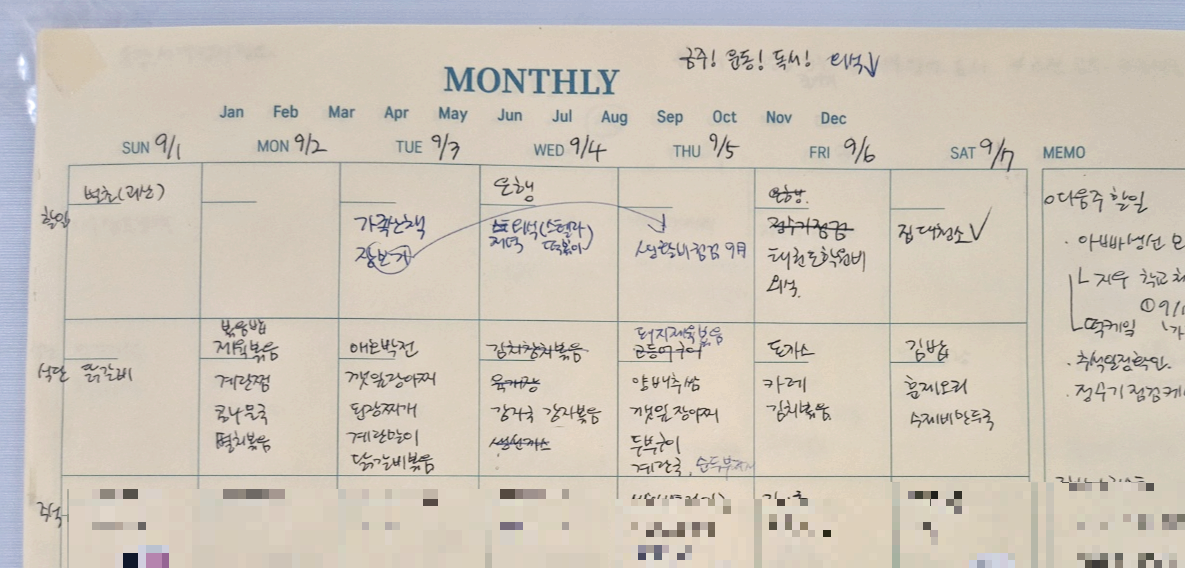 금주! 운동! 독서! 외식↓
MONTHLY
Jan Feb Mar Apr May Jun Jul Aug Sep Oct Nov Dec
SUN 9/1 MON 9/2 TUE 9/3 WED 9/4 THU 9/5 FRI 9/6 SAT 9/7 MEMO
할일
벌초(괴산)
가족산책
장보기
은행
외식(스텔라
저녁 떡볶이)
생활비점검 9月
은행
정수기점검
태권도학원비
외식
집대청소 ✓
식단
닭갈비
볶음밥
제육볶음
계란찜
콩나물국
멸치볶음
애호박전
깻잎장아찌
된장찌개
계란말이
닭갈비볶음
김치참치볶음
육개장
감자국 감자볶음
생선까스
돼지제육볶음
고등어구이
양배추쌈
깻잎장아찌
두부구이
계란국, 순두부찌개
돈가스
카레
김치볶음
김밥
훈제오리
수제비만두국
o다음주 할일
· 아빠생신
지우 학교
① 9/1
떡케잌
· 추석일정확인
· 정수기점검